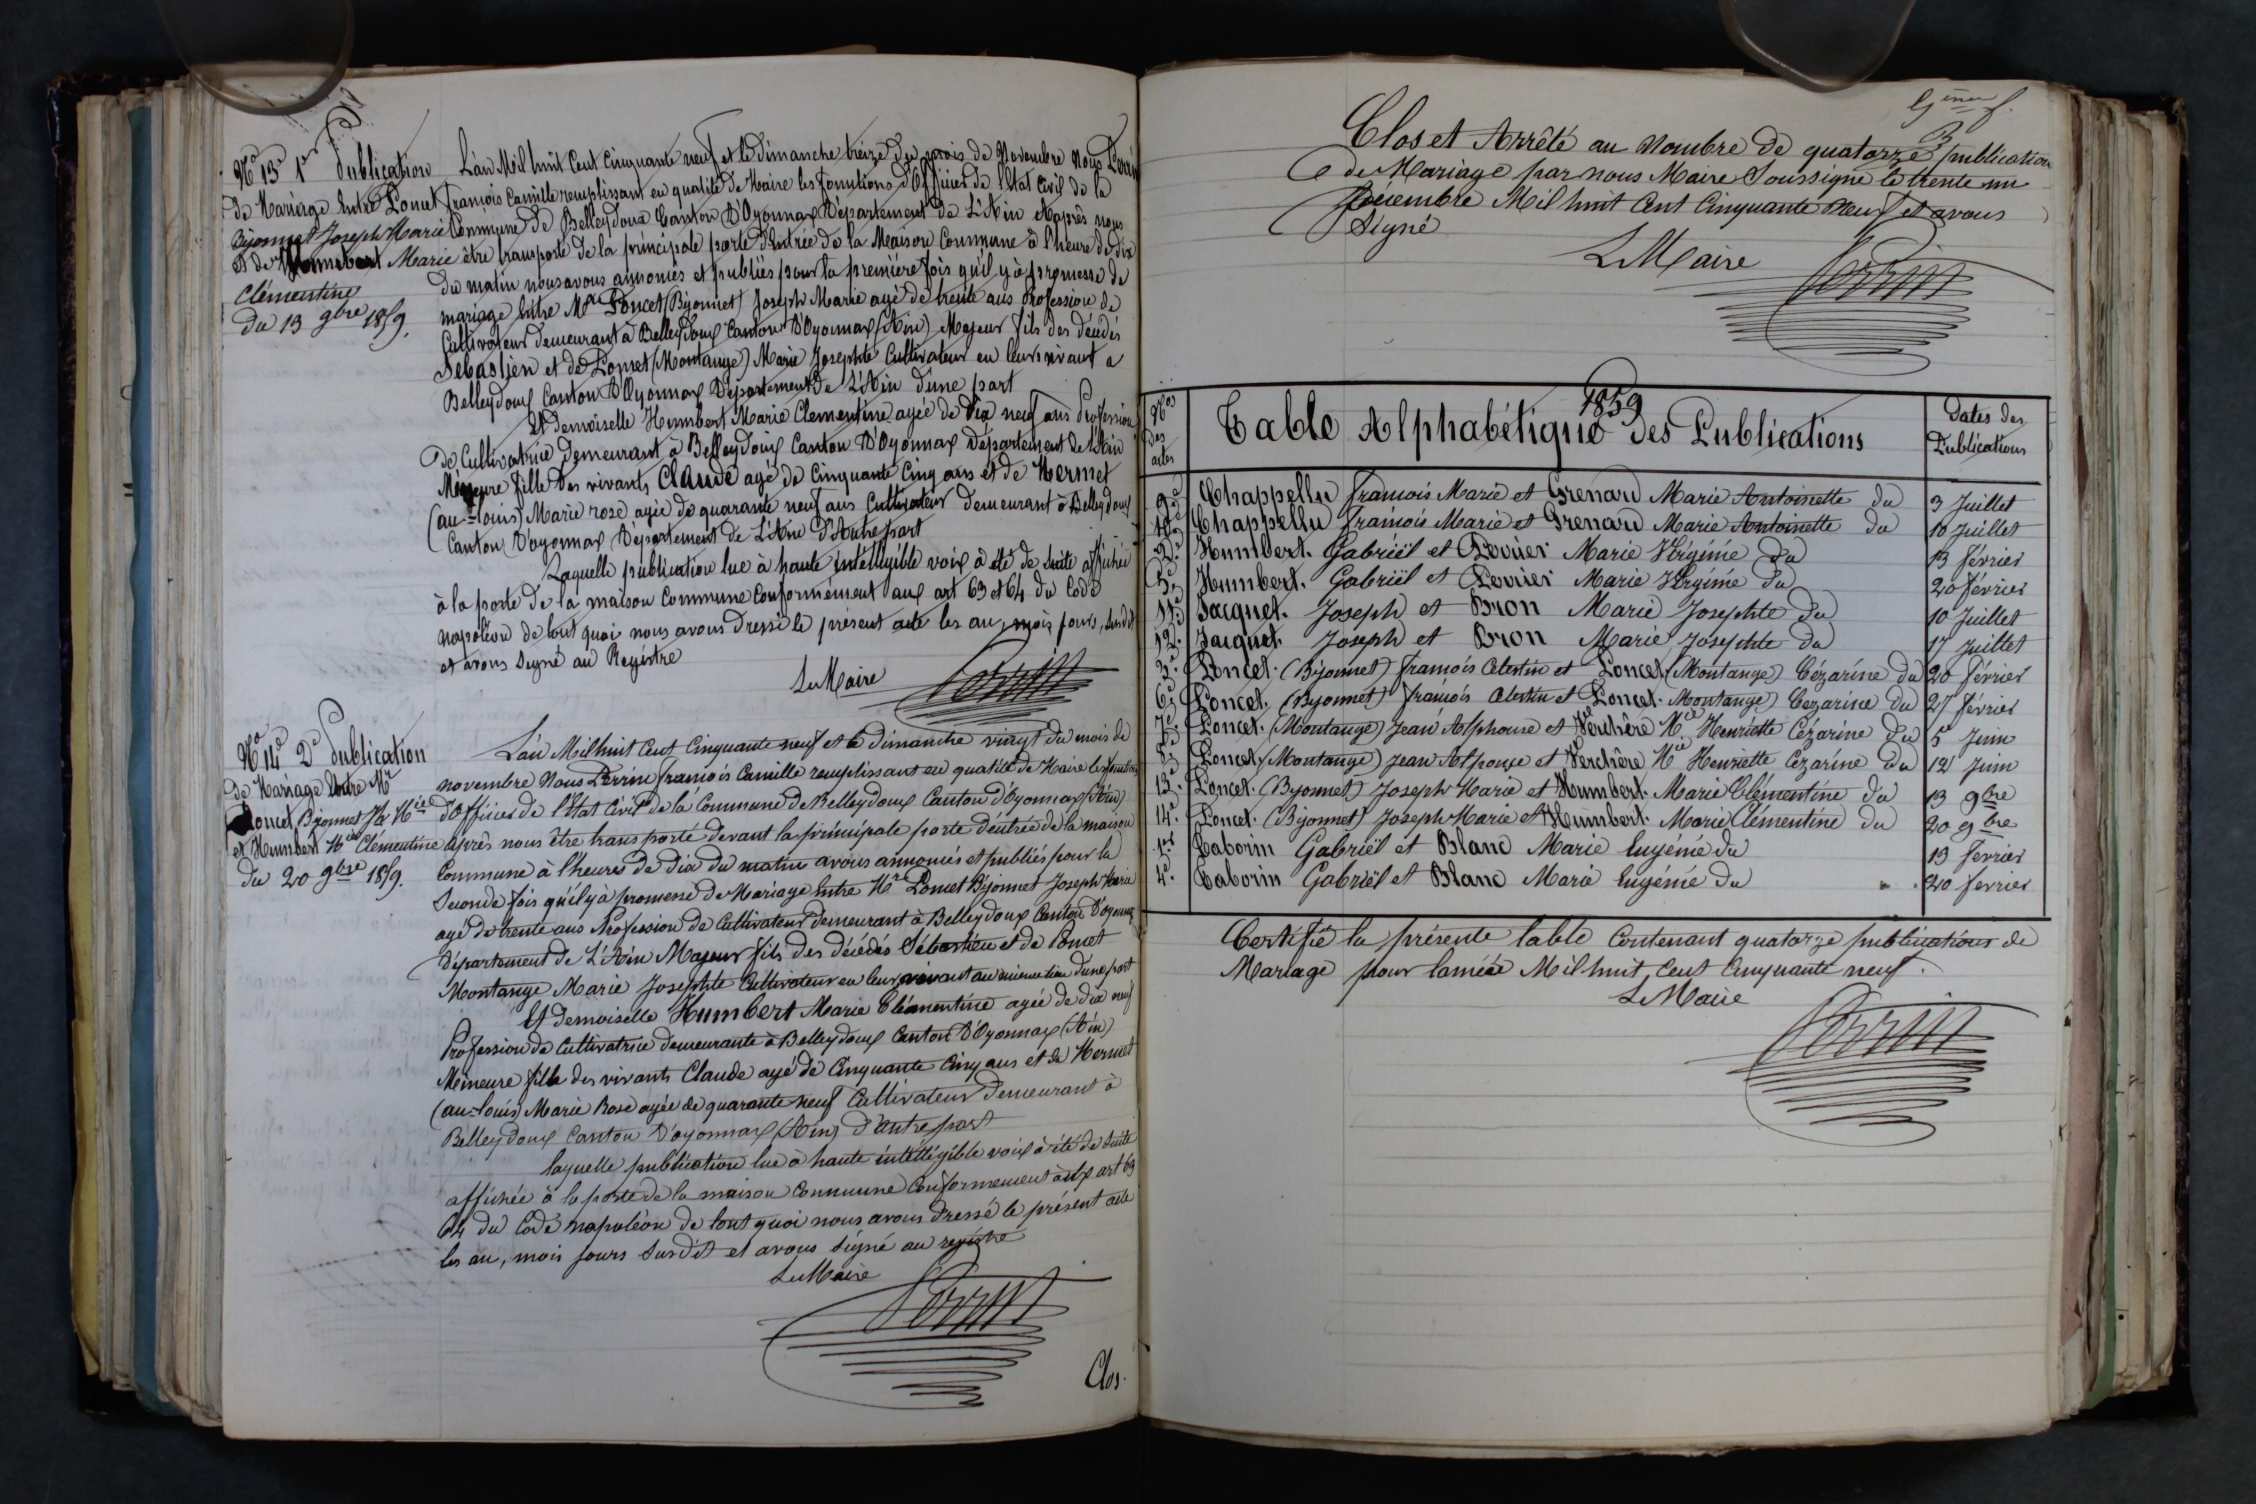 No 13e 1e Publication
de Mariage Entre Poncet
Byonnet Joseph Marie
et de Humbert Marie
Clémentine
du 13 9bre 1859.
L'an Mil huit Cent Cinquante neuf et le dimanche treize du mois de Novembre Nous Perrin
François Camille remplissant en qualité de Maire les fonctions d'Officier de l'Etat Civil de la
Commune de Belleydoux Canton D'Oyonnax Département de L'Ain Après nous
être transporté de la principale porte d'Entrée de la Maison Commune à l'heure de dix
du matin nous avons annoncés et publiés pour la première fois qu'il y à promesse de
mariage Entre Mr Poncet (Byonnet) Joseph Marie agé de trente ans Profession de
Cultivateur demeurant à Belleydoux Canton D'Oyonnax (Ain) Majeur fils des décédés
Sébastien et de Poncet (Montange) Marie Josephte Cultivateur en leurs vivant a
Belleydoux Canton D'Oyonnax Département de L'Ain d'une part
Et demoiselle Humbert Marie Clementine agée de Dix neuf ans Profession
de Cultivatrice demeurant à Belleydoux Canton D'Oyonnax Département de l'Ain
Mineure fille des vivants Claude agé de Cinquante Cinq ans et de Hermet
(au-louis) Marie rose agée de quarante neuf ans Cultivateur demeurant à Belleydoux
Canton D'oyonnax Département de L'Ain D'Autre part
Laquelle publication lue à haute intelligible voix à été de suite affichée
à la porte de la maison Commune Conformément aux art 63 et 64 du Code
napoléon de tout quoi nous avons Dressé le présent acte les an, mois jours, susdit
et avons signé au Registre
Le Maire Perrin
No 14e 2e Publication
de Mariage Entre Mr
Poncet Byonnet Jh Mie
et Humbert Mie Clémentine
du 20 9bre 1859.
L'an Mil huit Cent Cinquante neuf et le dimanche vingt du mois de
novembre Nous Perrin François Camille remplissant en qualité de Maire les fonctions
d'Officier de l'Etat Civil de la Commune de Belleydoux Canton d'Oyonnax (Ain)
après nous être transporté devant la principale porte d'entrée de la maison
Commune à l'heures de dix du matin avons annoncés et publiés pour la
Seconde fois qu'il y à promesse de Mariage Entre Mr Poncet Byonnet Joseph Marie
agé de trente ans Profession de Cultivateur demeurant à Belleydoux Canton D'oyonnax
département de L'Ain Majeur fils des décédés Sébastien et de Poncet
Montange Marie Josephte Cultivateur en leur vivant au d'une part
Et demoiselle Humbert Marie Clémentine agée de dix neuf
Profession de Cultivatrice demeurante à Belleydoux Canton D'Oyonnax (Ain)
Mineure fille des vivants Claude agé de Cinquante Cinq ans et de Hermet
(au-louis) Marie Rose agée de quarante neuf Cultivateur demeurant à
Belleydoux Canton D'oyonnax (Ain) d'autre part
laquelle publication lue à haute intélligible voix à été de suite
affichée à la porte de la maison Commune Conformement aux art 63
64 du Code napoléon de tout quoi nous avons Dressé le présent acte
les an, mois jours susdit et avons signé au registre
Le Maire
Perrin
Clos.
Clos et Arrêté au Nombre de quatorze publication
de Mariage par nous Maire Soussigné le trente un
Décembre Mil huit Cent Cinquante Neuf et avons
Signé
Le Maire Perrin
Nos des actes
1859
Table Alphabétique des Publications
Dates des Publications
9e Chappellu François Marie et Grenard Marie Antoinette du 3 Juillet
10e Chappellu François Marie et Grenard Marie Antoinette du 10 Juillet
2e Humbert. Gabriël et Perrier Marie Virginie du 13 février
5e Humbert. Gabriël et Perrier Marie Virginie du 20 février
11e Jacquet. Joseph et Bron Marie Josephte du 10 Juillet
12e Jacquet. Joseph et Bron Marie Josephte du 17 Juillet
3e Poncet. (Byonnet) François Célestin et Poncet (Montange) Cézarine du 20 février
6e Poncet. (Byonnet) François Célestin et Poncet. Montange) Cezarine du 27 février
7e Poncet. (Montange) Jean Alphonse et Verchère Mie Henriette Cézarine du 5 Juin
8e Poncet (Montange) Jean Alphonse et Verchère Mie Henriette Cézarine du 12 Juin
13e Poncet. (Byonnet) Joseph Marie et Humbert. Marie Clémentine du 13 9bre
14e Poncet. (Byonnet) Joseph Marie et Humbert. Marie Clémentine du 20 9bre
1er Taborin Gabriël et Blanc Marie Eugénie du 13 fevrier
4e Taborin Gabriël et Blanc Marie Eugénie du 20 fevrier
Certifié la présente table Contenant quatorze publications de
Mariage pour l'année Mil huit Cent Cinquante neuf.
Le Maire
Perrin